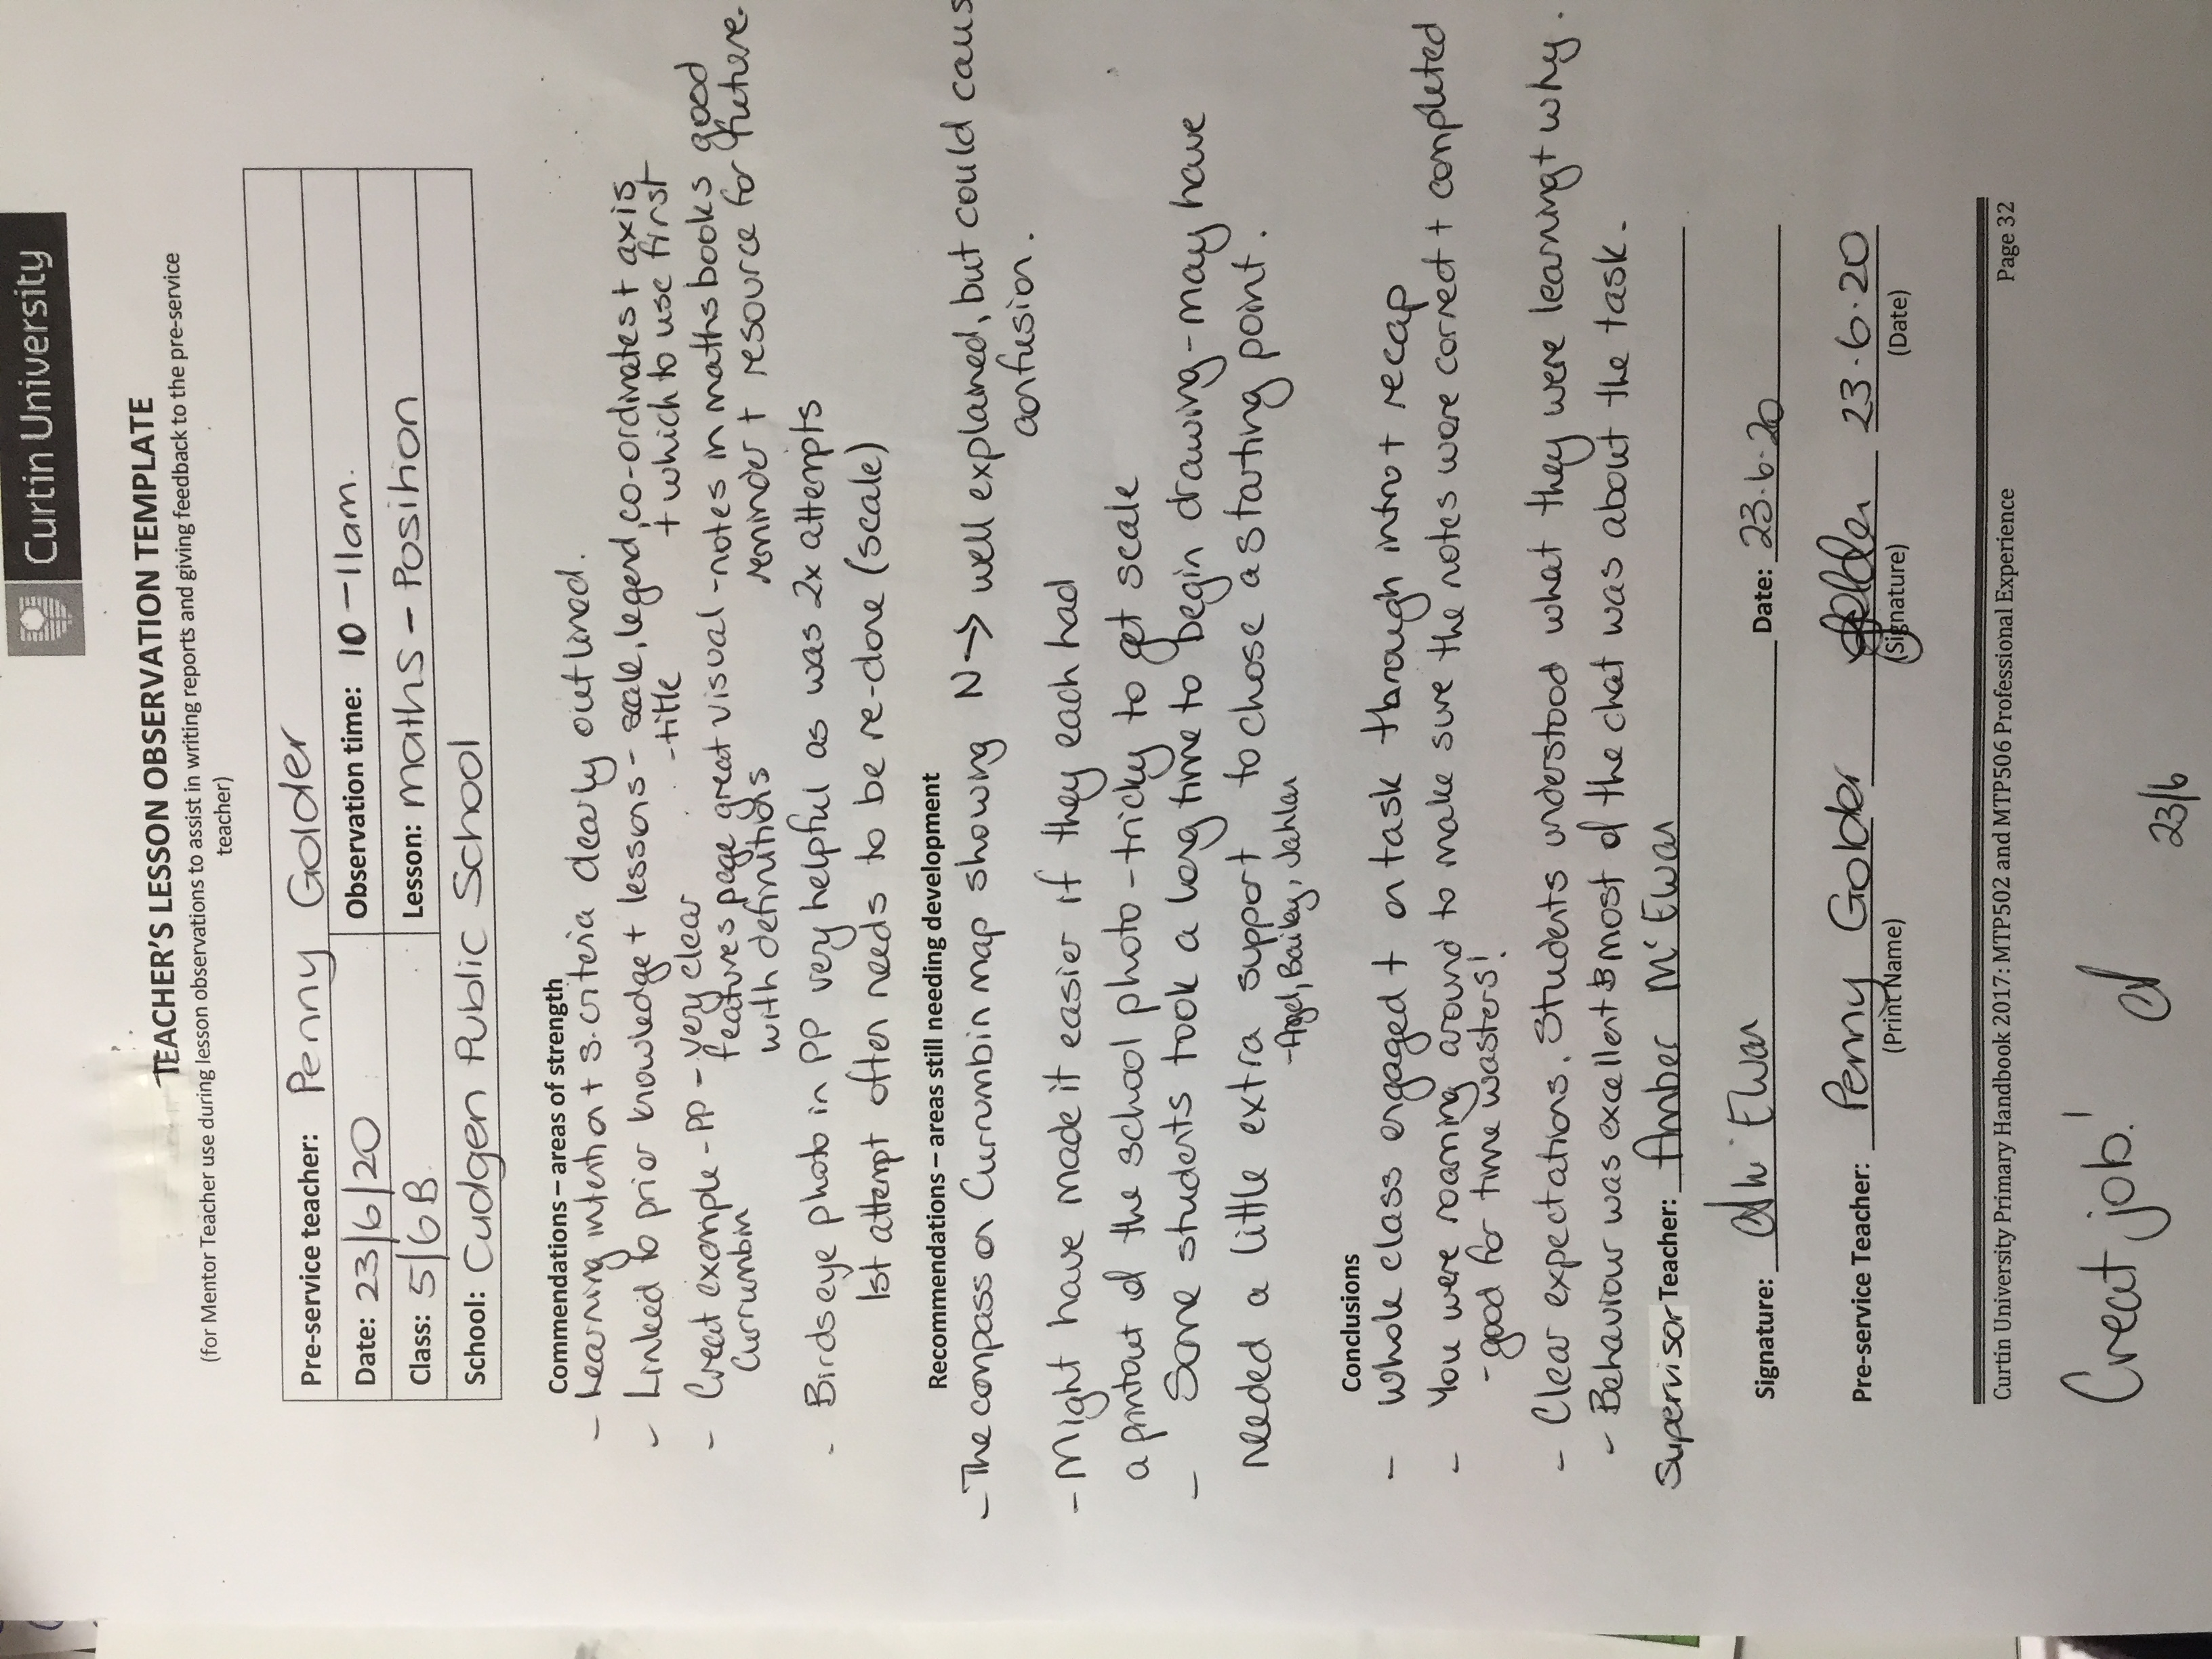 Curtin University
TEACHER'S LESSON OBSERVATION TEMPLATE
(for Mentor Teacher use during lesson observations to assist in writing reports and giving feedback to the pre-service
teacher)
Pre-service teacher: Penny Golder
Date: 23/6/20 Observation time: 10-11am.
Class: 5/6B. Lesson: maths - Position
School: Cudgen Public School
Commendations – areas of strength
- Learning intention + s.criteria clearly outlined.
- Linked to prior knowledge + lessons - scale, legend, co-ordinates + axis
- title + which to use first
- Great example - PP - very clear
Currumbin features page great visual - notes in maths books good
with definitions reminder + resource for future.
- Birdseye photo in PP very helpful as was 2x attempts
1st attempt often needs to be re-done (scale)
Recommendations – areas still needing development
- The compass on Currumbin map showing N → well explained, but could caus
confusion.
- Might have made it easier if they each had
a printout of the school photo - tricky to get scale
- Some students took a long time to begin drawing - may have
needed a little extra support to chose a starting point.
- Angel, Bailey, Jahlan
Conclusions
- Whole class engaged + on task through intro + recap
- You were roaming around to make sure the notes were correct + completed
- good for time wasters!
- Clear expectations. Students understood what they were learning + why.
- Behaviour was excellent & most of the chat was about the task.
Supervisor Teacher: Amber McEwan
Signature: Date: 23.6.20
Pre-service Teacher: Penny Golder 23.6.20
(Print Name) (Signature) (Date)
Curtin University Primary Handbook 2017: MTP502 and MTP506 Professional Experience Page 32
Great job! 23/6